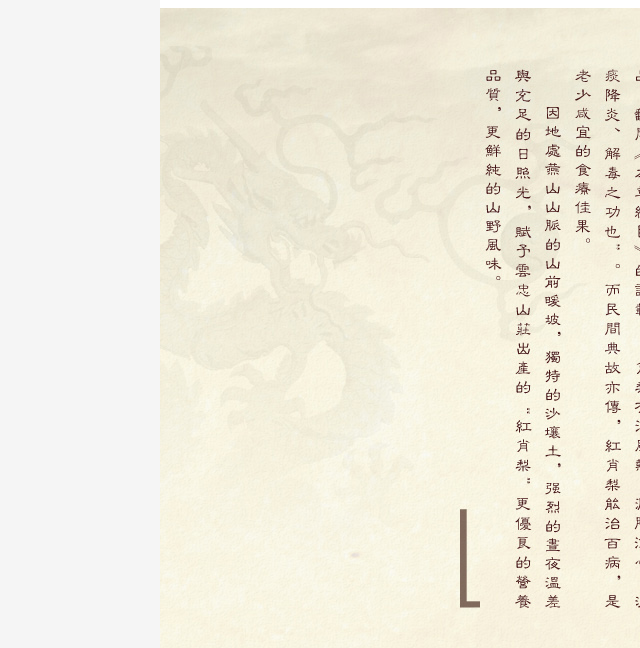 痰降炎、解毒之功也"。而民間典故亦傳，紅肖梨能治百病，是
老少咸宜的食療佳果。
因地處燕山山脈的山前暖坡，獨特的沙壤土，强烈的晝夜溫差
與充足的日照光，賦予雲忠山莊出産的"紅肖梨"更優良的營養
品質，更鮮純的山野風味。